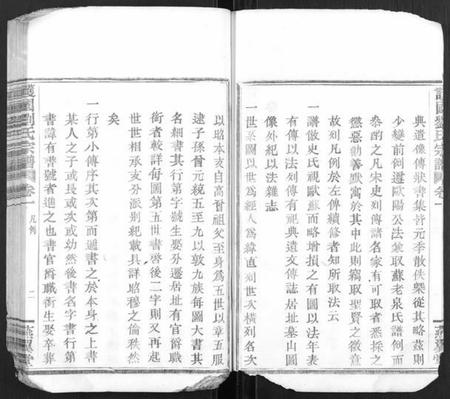 典遺像傳狀書集皆元季散佚槩從其略兹則
少變前例遵歐陽公法兼取蘇老泉氏譜例而
叅酌之凡宋史列傳諸名家有可取者悉採之
懲惡勸善咸寓於其中此則竊取聖賢之微意
故列凡例於左俾續修者知所取法云
一譜倣史氏視歐蘇而略增損之有圖以法年表
有傳以法列傳有祀典遺文傳誌居址墓山圖
像外紀以法雜志
一世圖以譜經世人為緯直列世次橫列名次
以昭本支自高曾祖父至身為五世以章五服
逮子孫曾元統五至九以敦九族每圖大書其
名細書其行第字號生娶分遷居址有官爵職
銜者較詳每圖第五世書啓後二字則又再起
世世相承支分派別紀載具詳昭穆之倫秩然
矣
一行第小傳序其次第而通書之於本身之上書
某人之子或長或次或幼然後書名字書行第
書諱有書號者進之也書官爵職術生娶卒葬
護國劉氏宗譜
卷一
凡例
二
燕翼堂